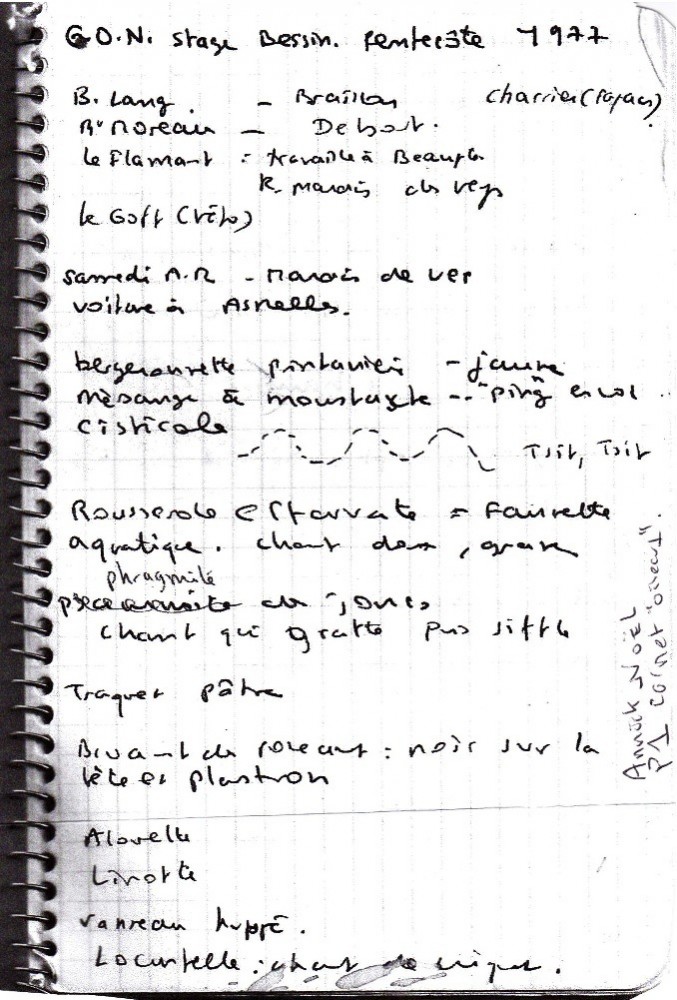 G.O.N. stage Bessin. Pentecôte 1977
B. Lang - Braillon Charrier (Papacy)
Moreau - Debout.
le Flamant : travaille à
R. marais de veys
le Goff (véto)
samedi A.R - Marais de ver
voiture à Asnelles.
bergeronnette printanière - jaune
mésange à moustache -- "ping" envol
cisticole
Tsit, Tsit
Rousserole effarvate = Fauvette
aquatique. chant doux, grave
phragmite
de joncs
chant qui gratte puis siffle
Traquet pâtre
Bruant des roseaux : noir sur la
tête et plastron
Alouette
Linotte
vanneau huppé.
Locustelle : chant de criquet.
Annick NOËL
P1 carnet "oiseaux".